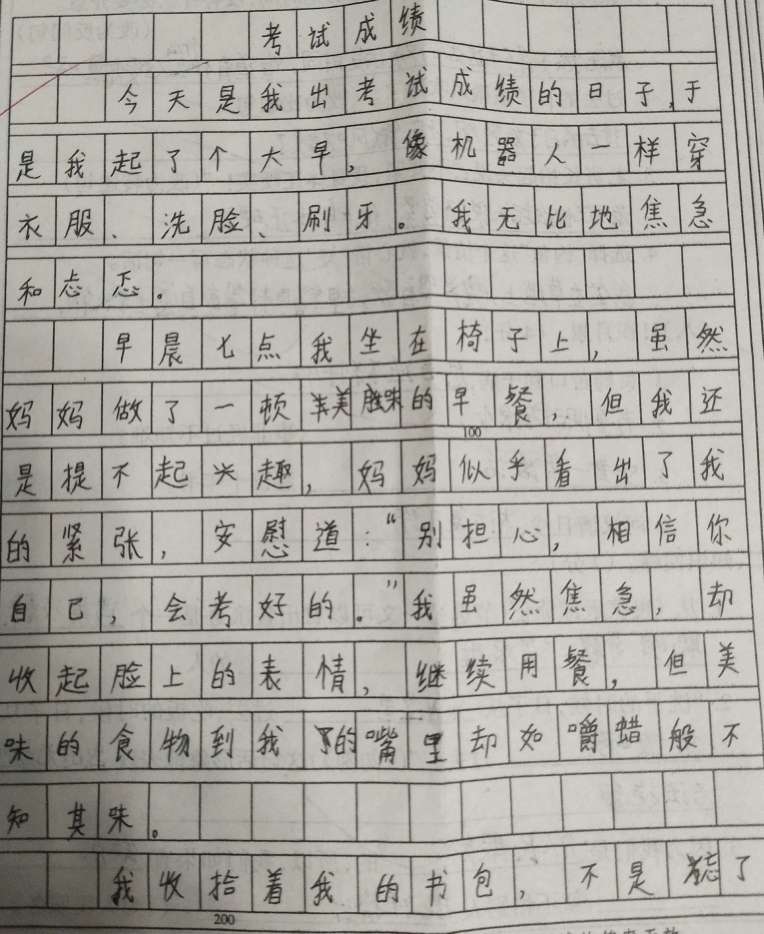 考试成绩
今天是我出考试成绩的日子,于
是我起了个大早,像机器人一样穿
衣服、洗脸、刷牙。我无比地焦急
和忐忑。
早晨七点我坐在椅子上,虽然
妈妈做了一顿美味的早餐,但我还
100
是提不起兴趣,妈妈似乎看出了我
的紧张,安慰道:“别担心,相信你
自己,会考好的。”我虽然焦急,却
收起脸上的表情,继续用餐,但美
味的食物到我的嘴里却如嚼蜡般不
知其味。
我收拾着我的书包,不是忘了
200